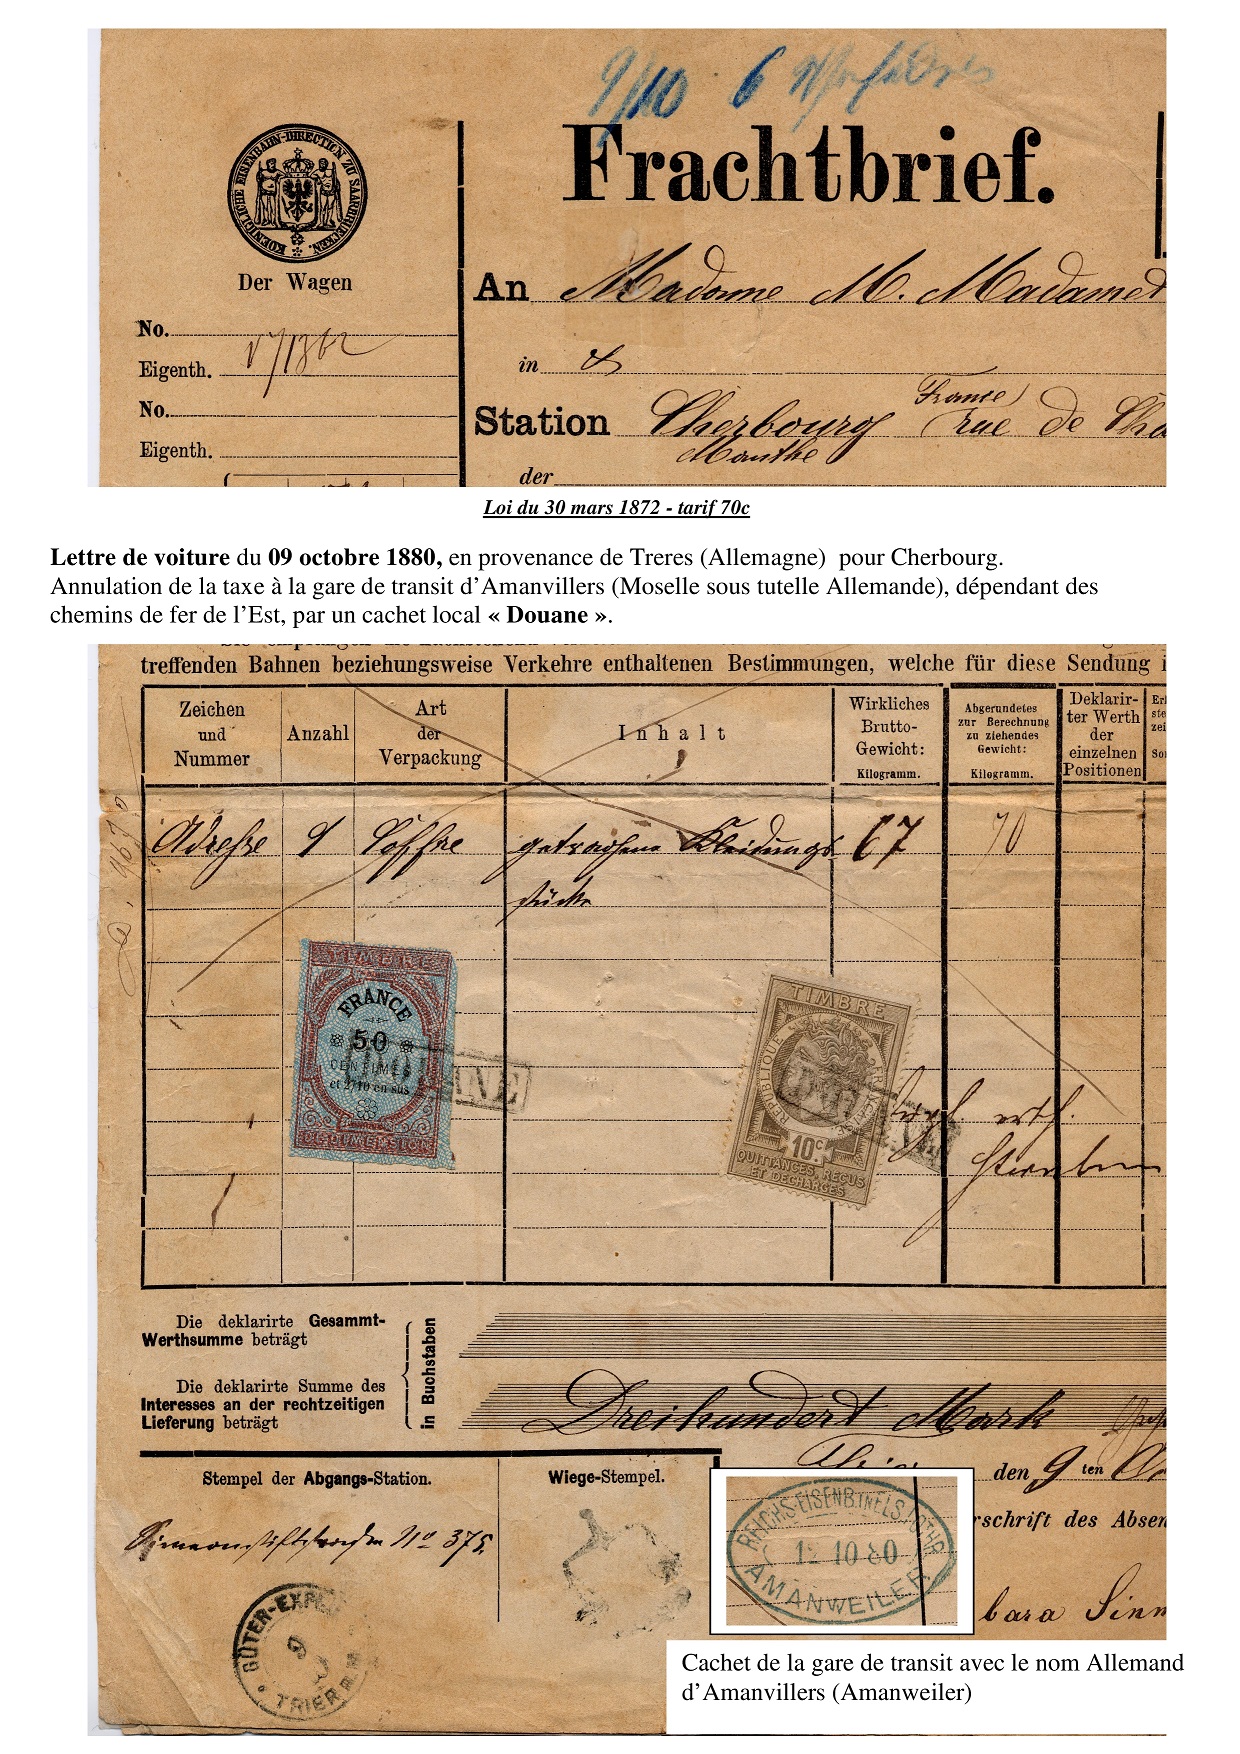 9/10 6
Frachtbrief.
KOENIGLICHE EISENBAHN-DIRECTION ZU SAARBRUECKEN.
Der Wagen
No.
Eigenth.
No.
Eigenth.
An Madame M.
in
Station Cherbourg France rue de
Manche
der
Loi du 30 mars 1872 - tarif 70c
Lettre de voiture du 09 octobre 1880, en provenance de Treres (Allemagne) pour Cherbourg.
Annulation de la taxe à la gare de transit d’Amanvillers (Moselle sous tutelle Allemande), dépendant des
chemins de fer de l’Est, par un cachet local « Douane ».
treffenden Bahnen beziehungsweise Verkehre enthaltenen Bestimmungen, welche für diese Sendung i
Zeichen und Nummer
Anzahl
Art der Verpackung
Inhalt
Wirkliches Brutto-Gewicht: Kilogramm.
Abgerundetes zur Berechnung zu ziehendes Gewicht: Kilogramm.
Deklarirter Werth der einzelnen Positionen
Adresse 1 getragene Kleidungs 67 70
stücke
TIMBRE
FRANCE
50
CENTIMES
et 2/10 en sus
DOUANE
TIMBRE
REPUBLIQUE FRANCAISE
10c
QUITTANCES, REÇUS
ET DECHARGES
Die deklarirte Gesammt-
Werthsumme beträgt
Die deklarirte Summe des
Interesses an der rechtzeitigen
Lieferung beträgt
in Buchstaben
Dreihundert Mark
Trier den 9ten
Stempel der Abgangs-Station.
Wiege-Stempel.
rschrift des Absen
No 375.
GÜTER-EXPED
TRIER
REICHS-EISENB. IN ELS. LOTHR.
12 10 80
AMANWEILER
bara Sinn
Cachet de la gare de transit avec le nom Allemand
d’Amanvillers (Amanweiler)